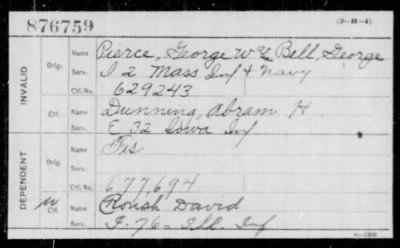 876759
(3-H-4)
INVALID
Orig.
Name Pierce, George W & Bell, George
Serv. I 2 Mass Inf & Navy
Ctf. No. 629243
Ctf.
Name Dunning, Abram H.
Serv. E 32 Iowa Inf
DEPENDENT
Orig.
Name Tis
Serv.
Ctf. No. 677,694
w Ctf.
Name Roush David
Serv. F. 76 - Ill. Inf